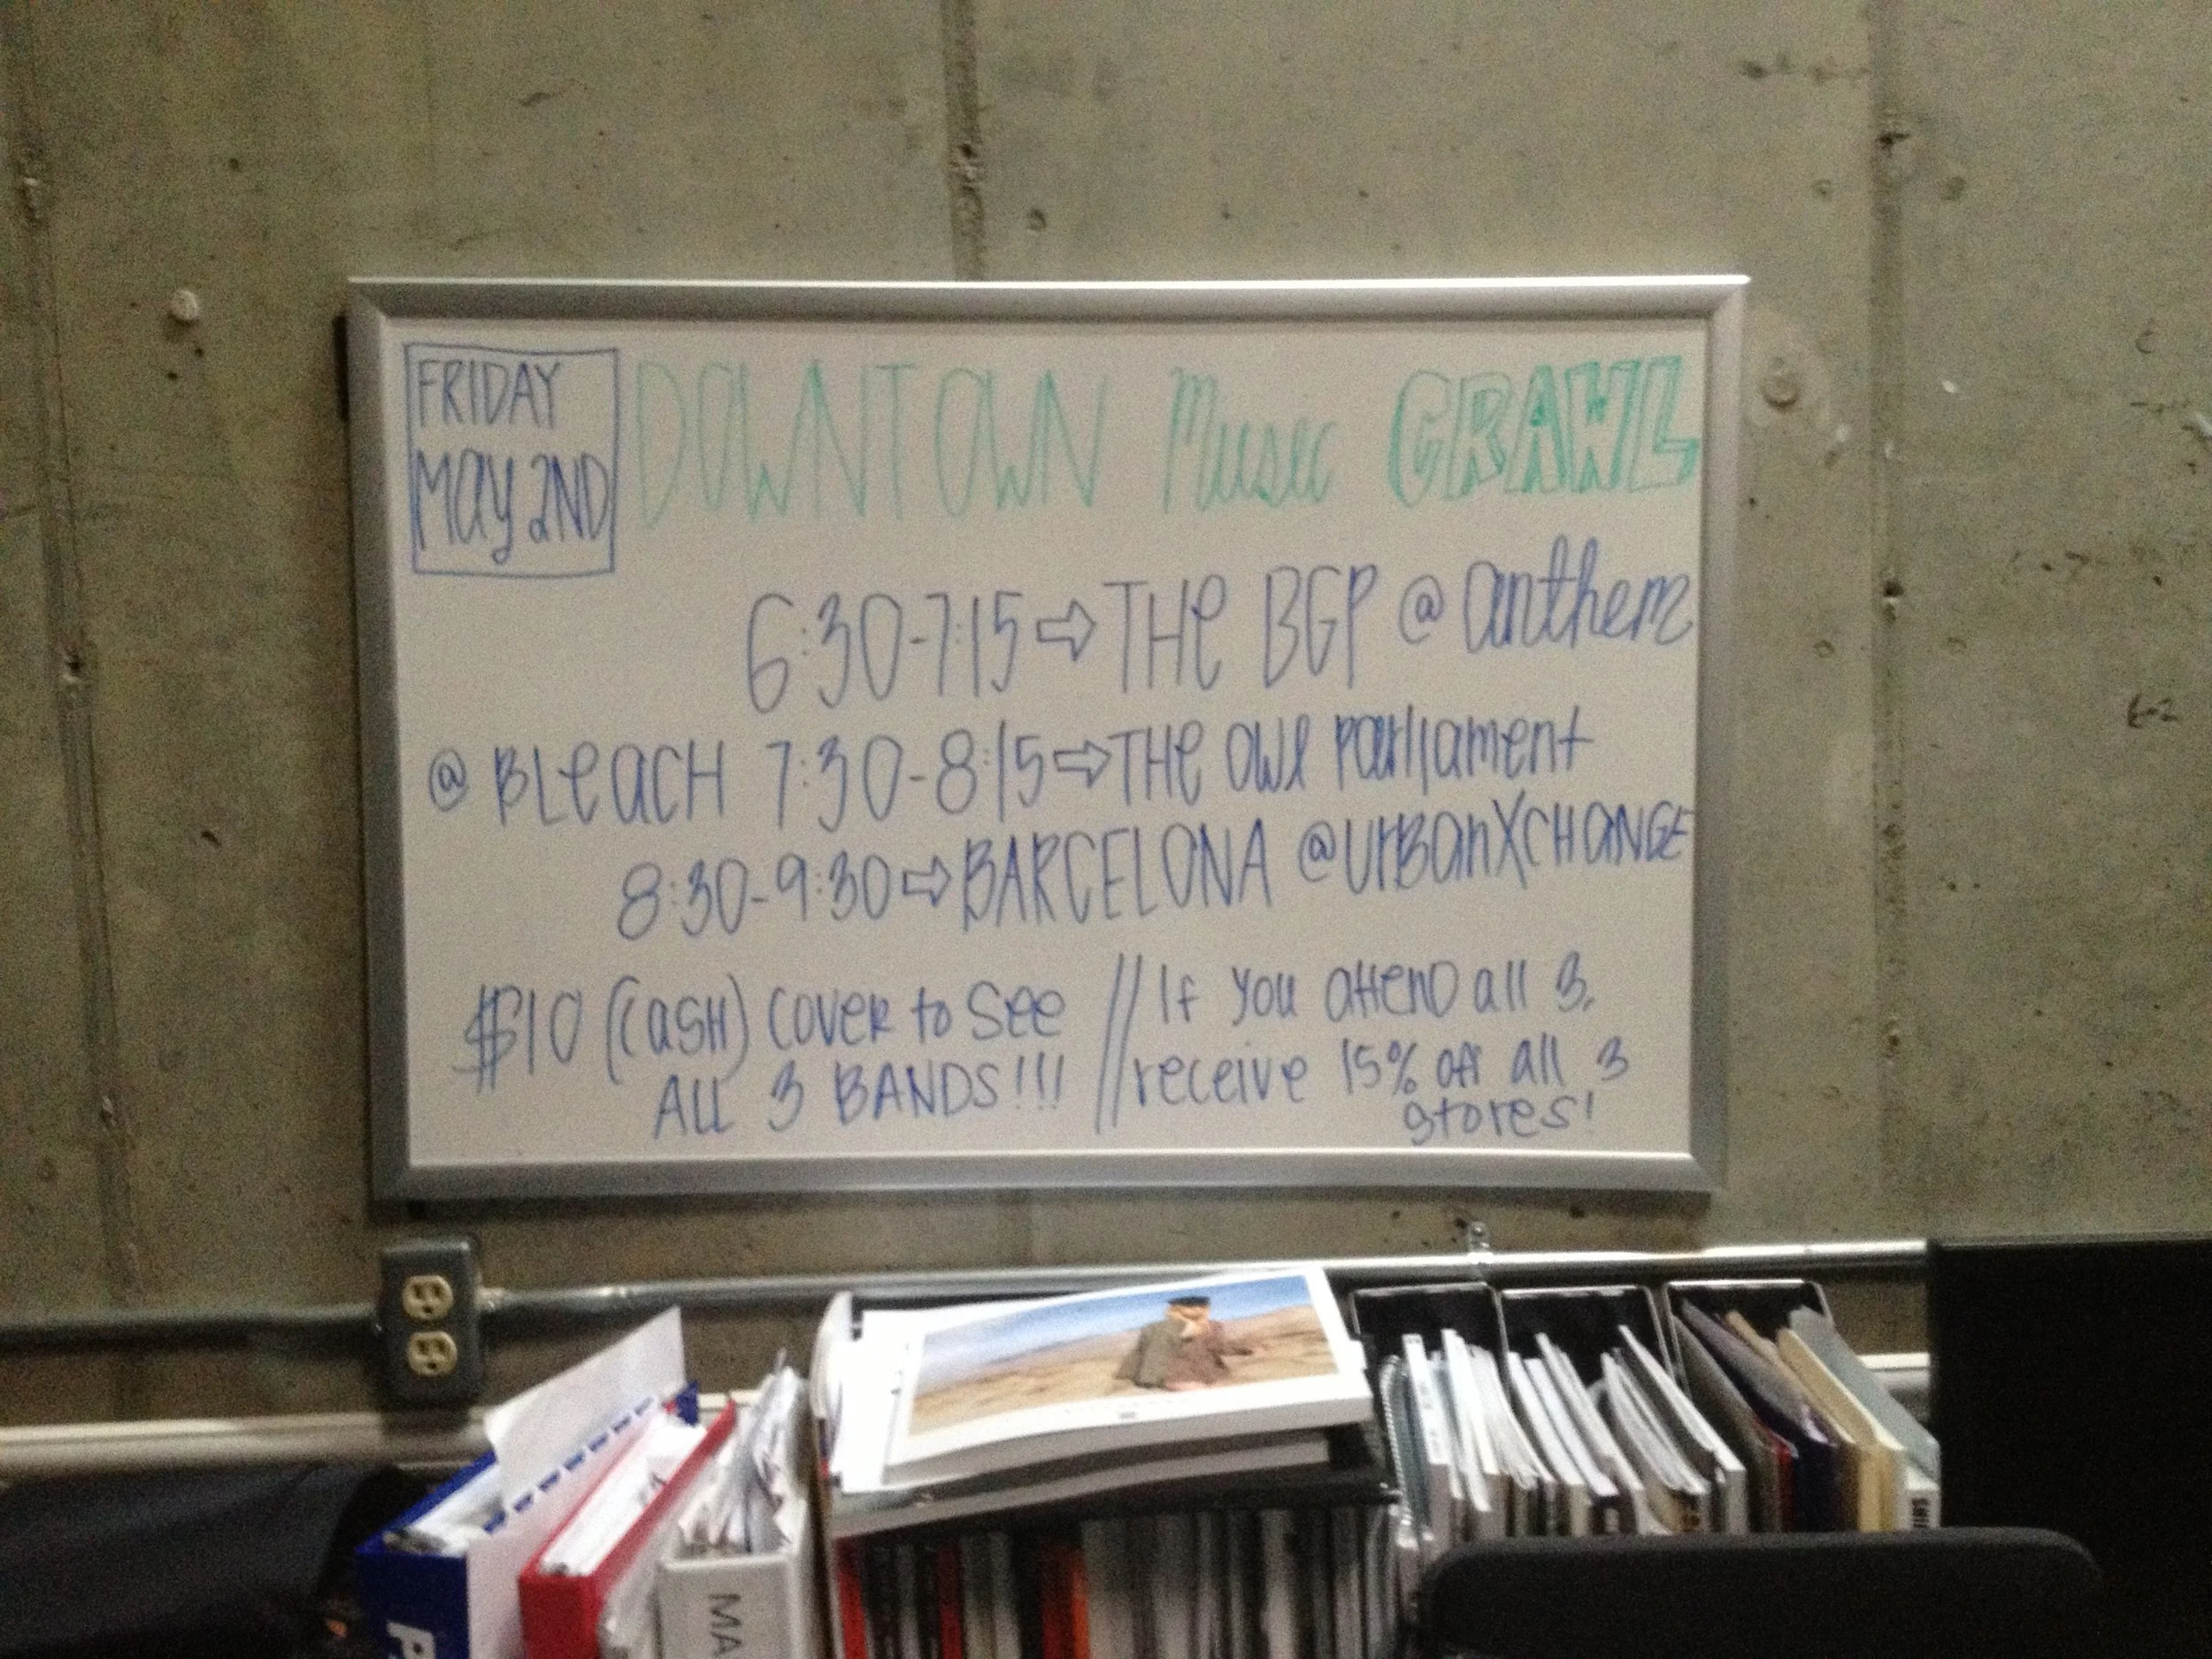 FRIDAY
MAY 2ND
DOWNTOWN Music CRAWL
6:30-7:15 ⇨ THe BGP @ anthem
@ BLeacH 7:30-8:15 ⇨ THe OWl Parliament
8:30-9:30 ⇨ BARCELONA @ UrBanXCHANGE
$10 (CasH) COVER to See
ALL 3 BANDS!!!
// If You attenD all 3,
receive 15% off all 3
stores!
MA